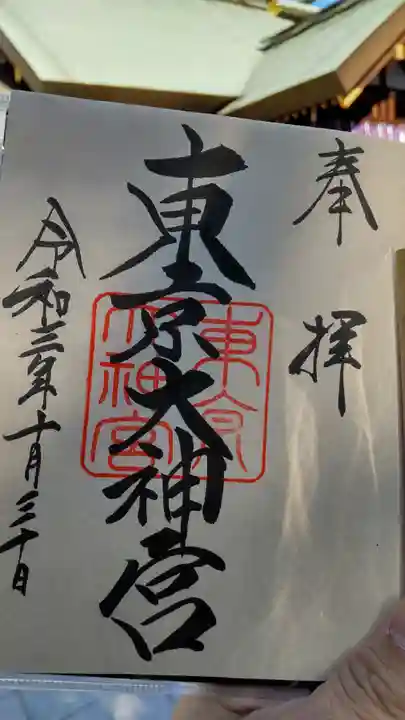 奉拝
東京大神宮
東京大神宮
令和三年十月三十日